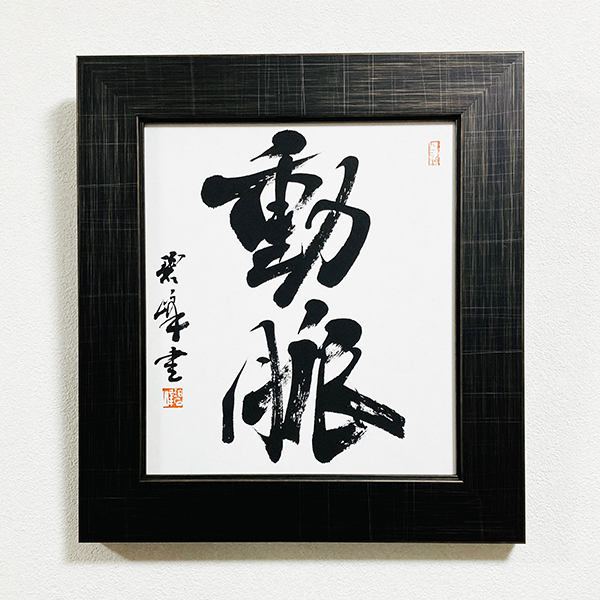 動脈
碧峰書